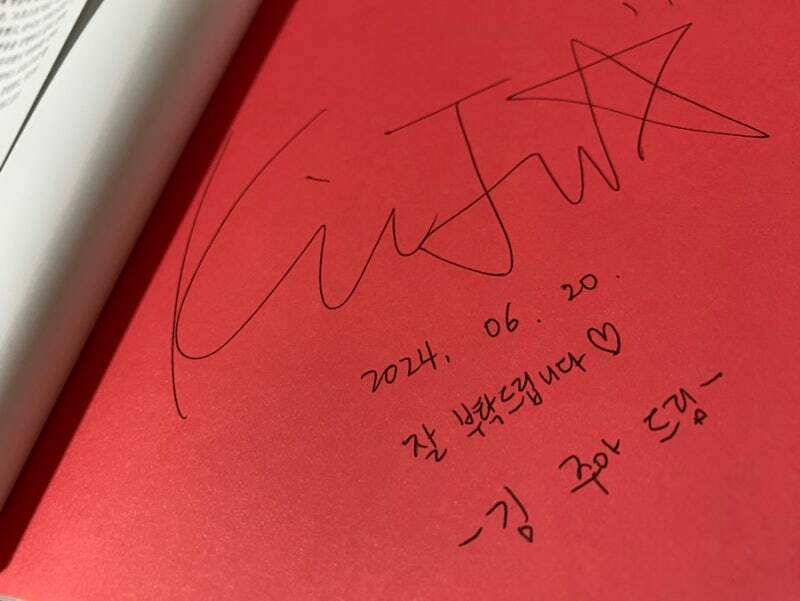 Kim Ju
2024. 06. 20.
잘 부탁드립니다♡
-김 주아 드림-